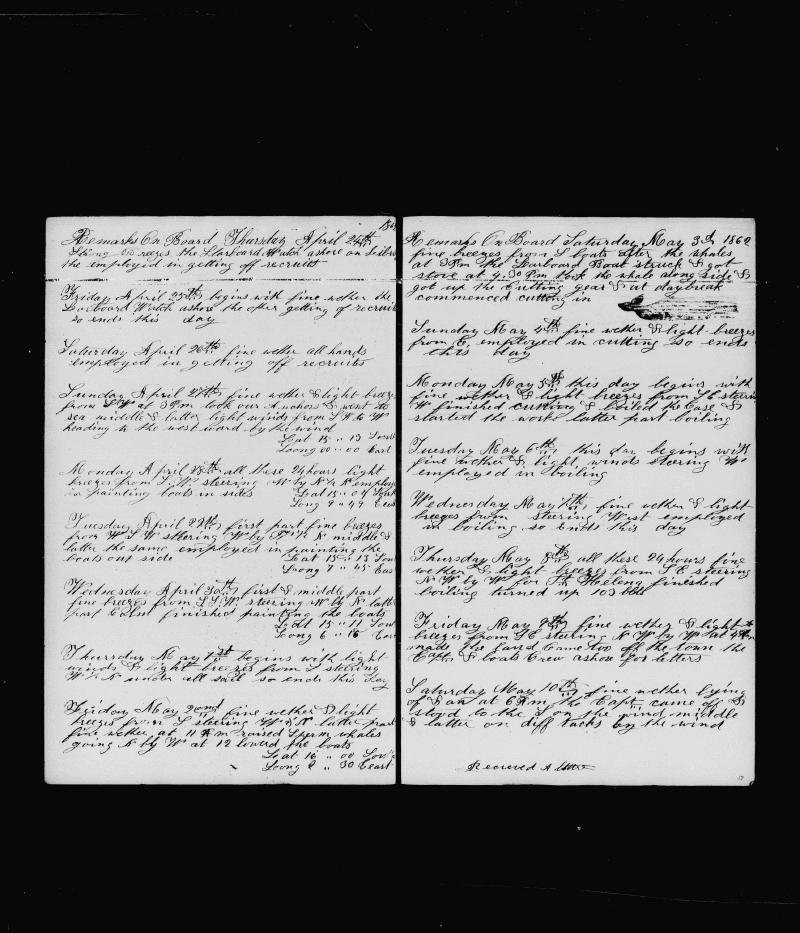 186
Remarks On Board Thursday April 24th
Strong Breezes the Starboard Watch ashore on
the employed in getting off recruits
Friday April 25th begins with fine wether the
Larboard Watch ashore the other getting of recruits
so ends this day
Saturday April 26th fine wether all hands
employed in getting off recruits
Sunday April 27th fine wether & light breezes
from at 3 Pm took our Anchors & went to
sea middle & latter light winds from S to W
heading to the west ward by the wind
Lat 15 " 13 South
Loong 00 " 00 East
Monday April 28th all these 24 hours light
breezes from steering W by N employ
in painting boats in sides Lat 15 " 04 South
Long 9 " 49 East
Tuesday April 29th first part fine breezes
from W S W steering W by N middle &
latter the same employed in painting the
boats out side Lat 15 " 13 Sou
Loong 7 " 45 Eas
Wednesday April 30th first & middle part
fine breezes from S S W. steering W by N latter
part Calm finished painting the boats
Lat 15 " 11 Sou
Loong 6 " 16 Eas
Thursday May 1st begins with light
winds & light breezes from S steering
W by N under all sail so ends this day
Friday May 2ond fine wether & light
breezes from S steering W & N latter part
fine wether at 11 Am raised Sperm whales
going N by W at 12 lowerd the boats
Lat 16 " 00 Sou
Loong 2 " 30 Eeast
Remarks On Board Saturday May 3d 1862
fine breezes from S boats after the whales
at 3 Pm the Larboard Boat struck & got
stove at 4.30 Pm took the whale along side &
got up the Cutting gear & at daybreak
commenced cutting in
Sunday May 4th fine wether & light breezes
from E, employed in cutting so ends
this day
Monday May 5th this day begins with
fine wether & light breezes from S E steering
W finished cutting & boiled the Case &
started the works latter part boiling
Tuesday May 6th this day begins with
fine wether & light winds steering W
employed in boiling
Wednesday May 7th fine wether & light
breezes from steering West employed
in boiling so Ends this day
Thursday May 8th all these 24 hours fine
wether & light breezes from S E steering
N W by W for St Heleng finished
boiling turned up 103 bbl
Friday May 9th fine wether & light
breezes from S E steering N W by W at 4 Pm
made the land Came too off the town the
Capt & boats Crew ashore for letters
Saturday May 10th fine wether lying
of & on at 6 Pm the Capt came off &
stood to the S on the wind middle
& latter on diff tacks by the wind
Received A letter